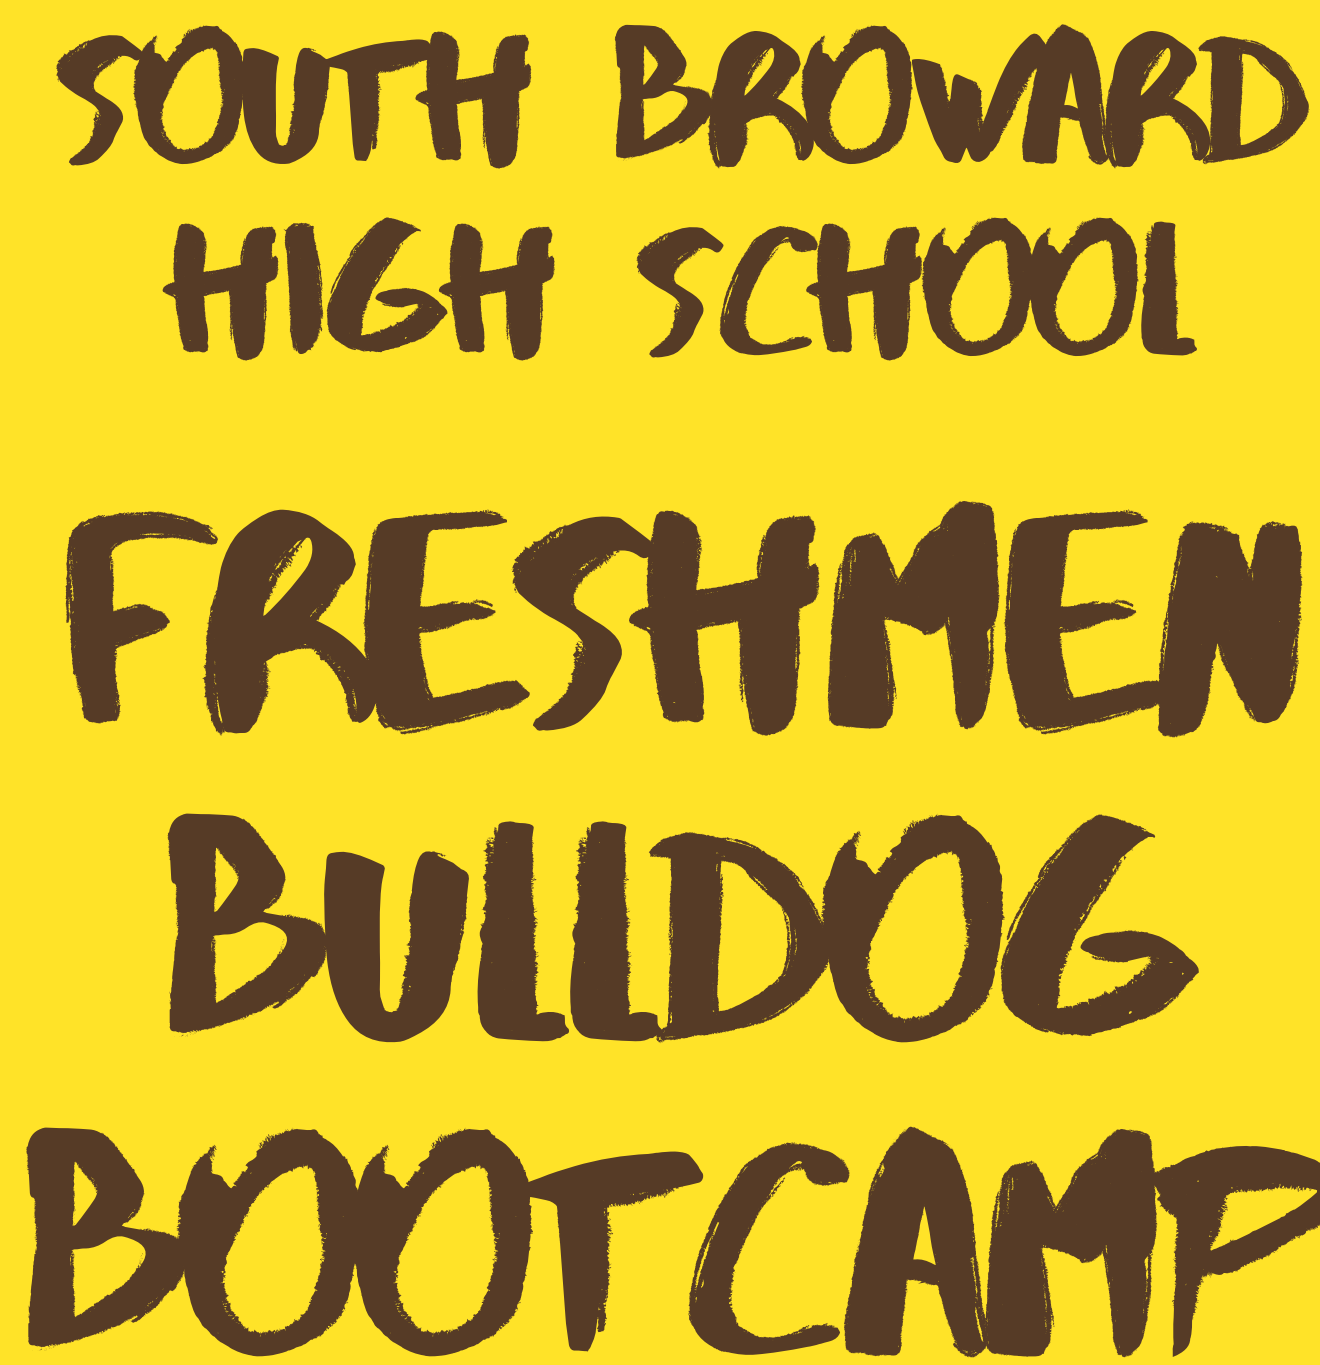 SOUTH BROWARD
HIGH SCHOOL
FRESHMEN
BULLDOG
BOOTCAMP